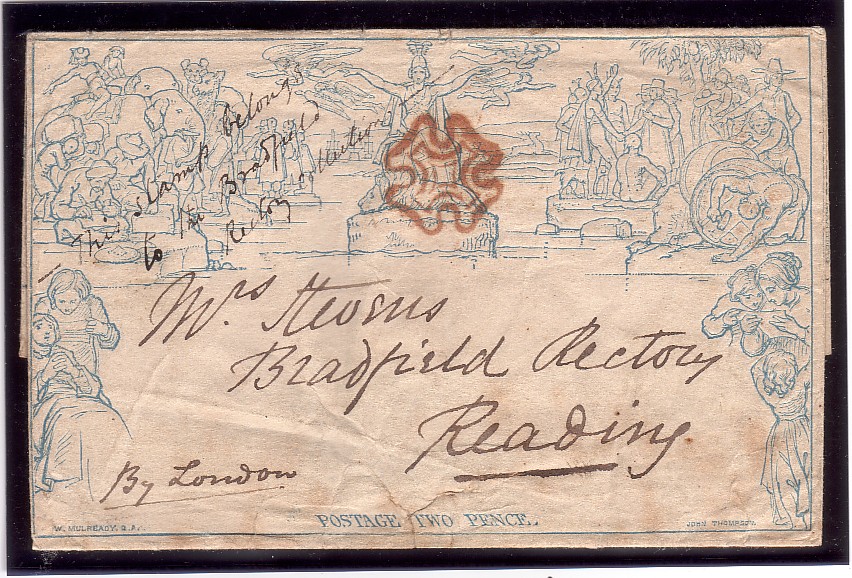 This stamp belongs
to the Bradfield
Rectory collection
Mrs Stevens
Bradfield Rectory
Reading
By London
POSTAGE TWO PENCE.
W. MULREADY. R.A.
JOHN THOMPSON.